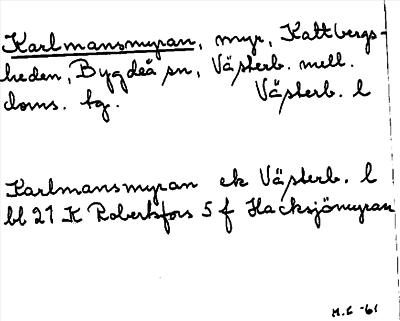 Karlmansmyran, myr, Kattbergs-
heden, Bygdeå sn, Västerb. mell.
doms. tg. Västerb. l
Karlmansmyran ek Västerb. l
bl 21 K Robertsfors 5 f Hacksjömyran
H.C -61